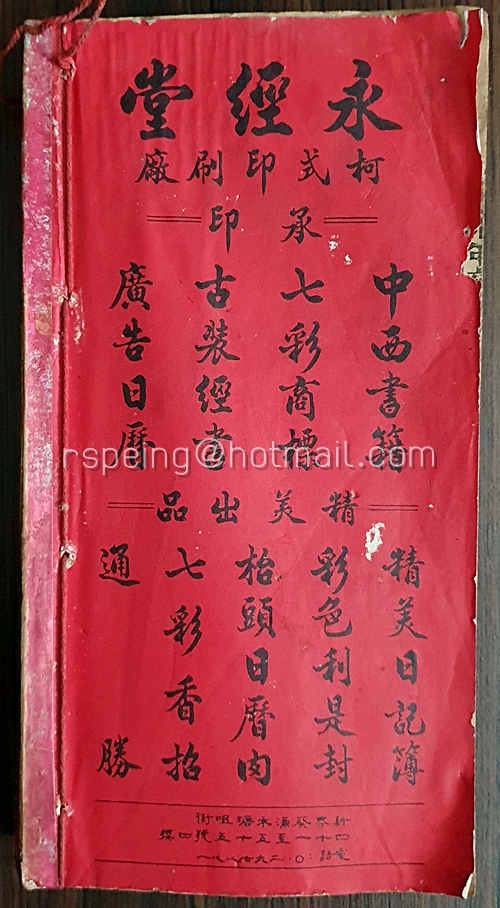 永經堂
柯式印刷廠
承印
中西書籍
七彩商標
古裝經書
廣告日曆
rspeing@hotmail.com
精美出品
精美日記簿
彩色利是封
枱頭日曆肉
七彩香招
通勝
新界葵涌水塘咀街
四十一至五十五號四樓
電話：〇·二九七八八一